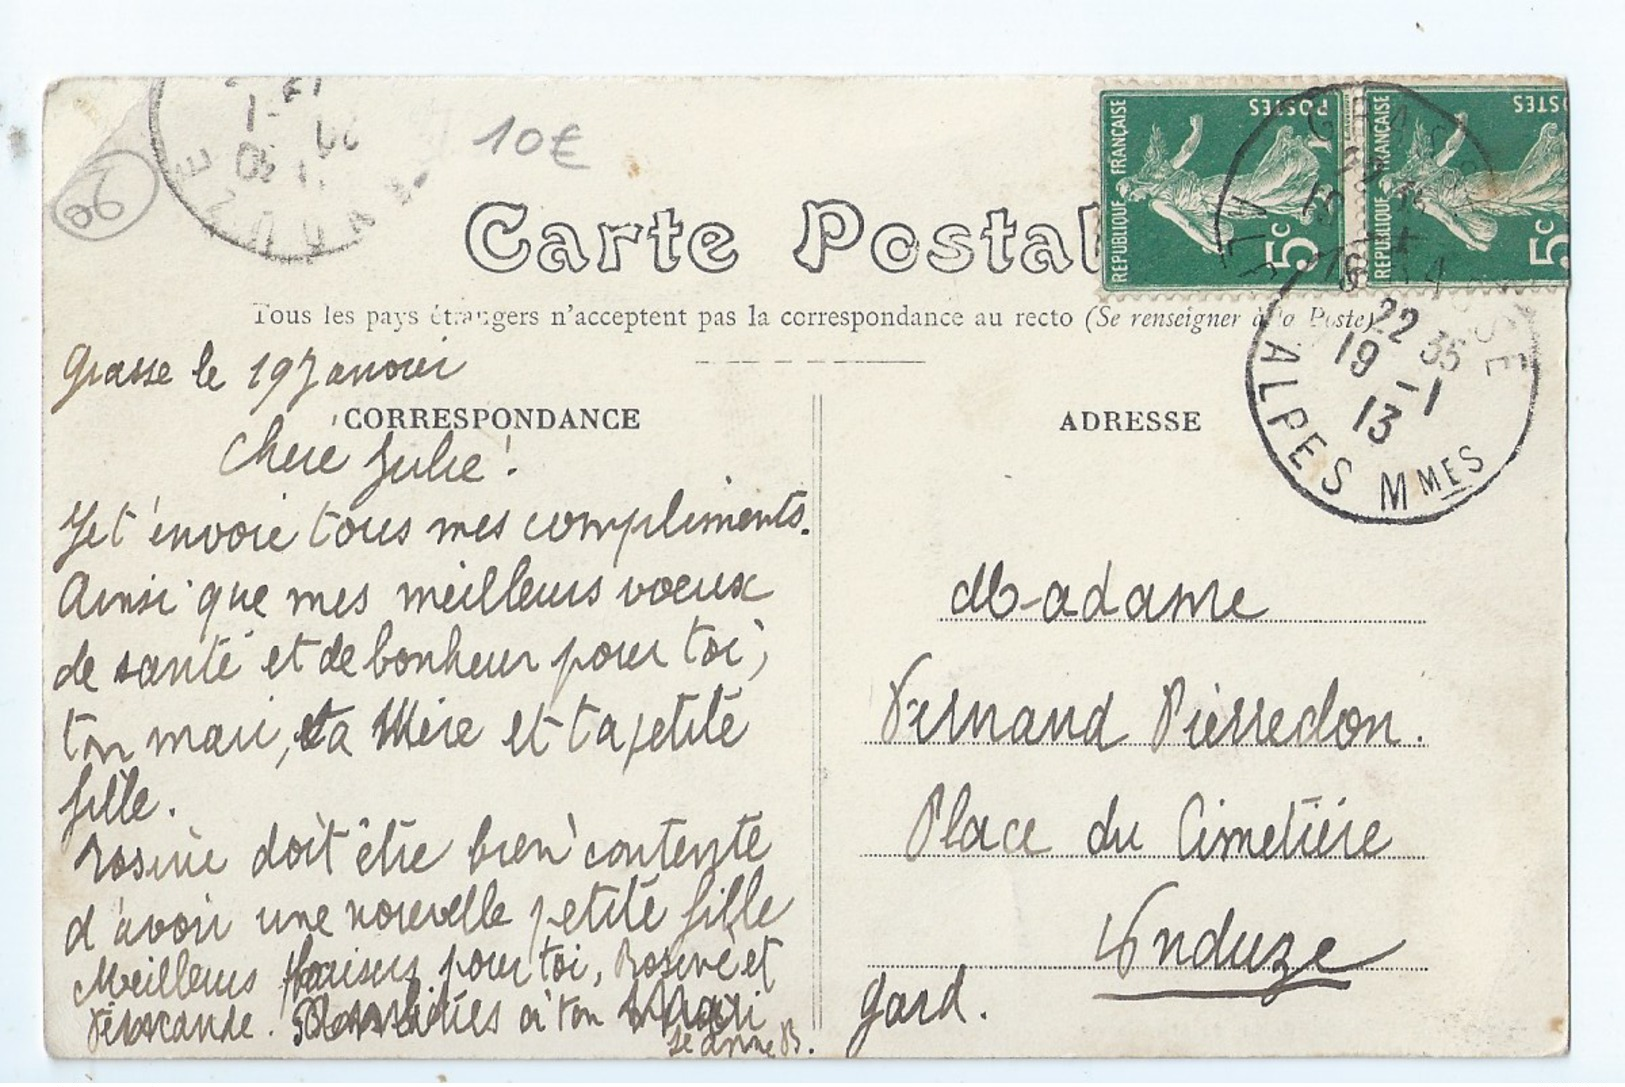 10€
06
Carte Postal
Tous les pays étrangers n'acceptent pas la correspondance au recto (Se renseigner à la Poste)
REPUBLIQUE FRANÇAISE
POSTES
5c
REPUBLIQUE FRANÇAISE
POSTES
5c
22 35
19 -1
13
ALPES MMES
Grasse le 19 Janvier
CORRESPONDANCE
Chère Julie!
Je t'envoie tous mes compliments.
Ainsi que mes meilleurs voeux
de santé et de bonheur pour toi,
ton mari, ta Mère et ta petite
fille.
Rosine doit être bien contente
d'avoir une nouvelle petite fille
Meilleurs baisers pour toi, Rosine et
à ton Mari
Jeanne B.
ADRESSE
Madame
Fernand Pierredon.
Place du Cimetière
Anduze
Gard.